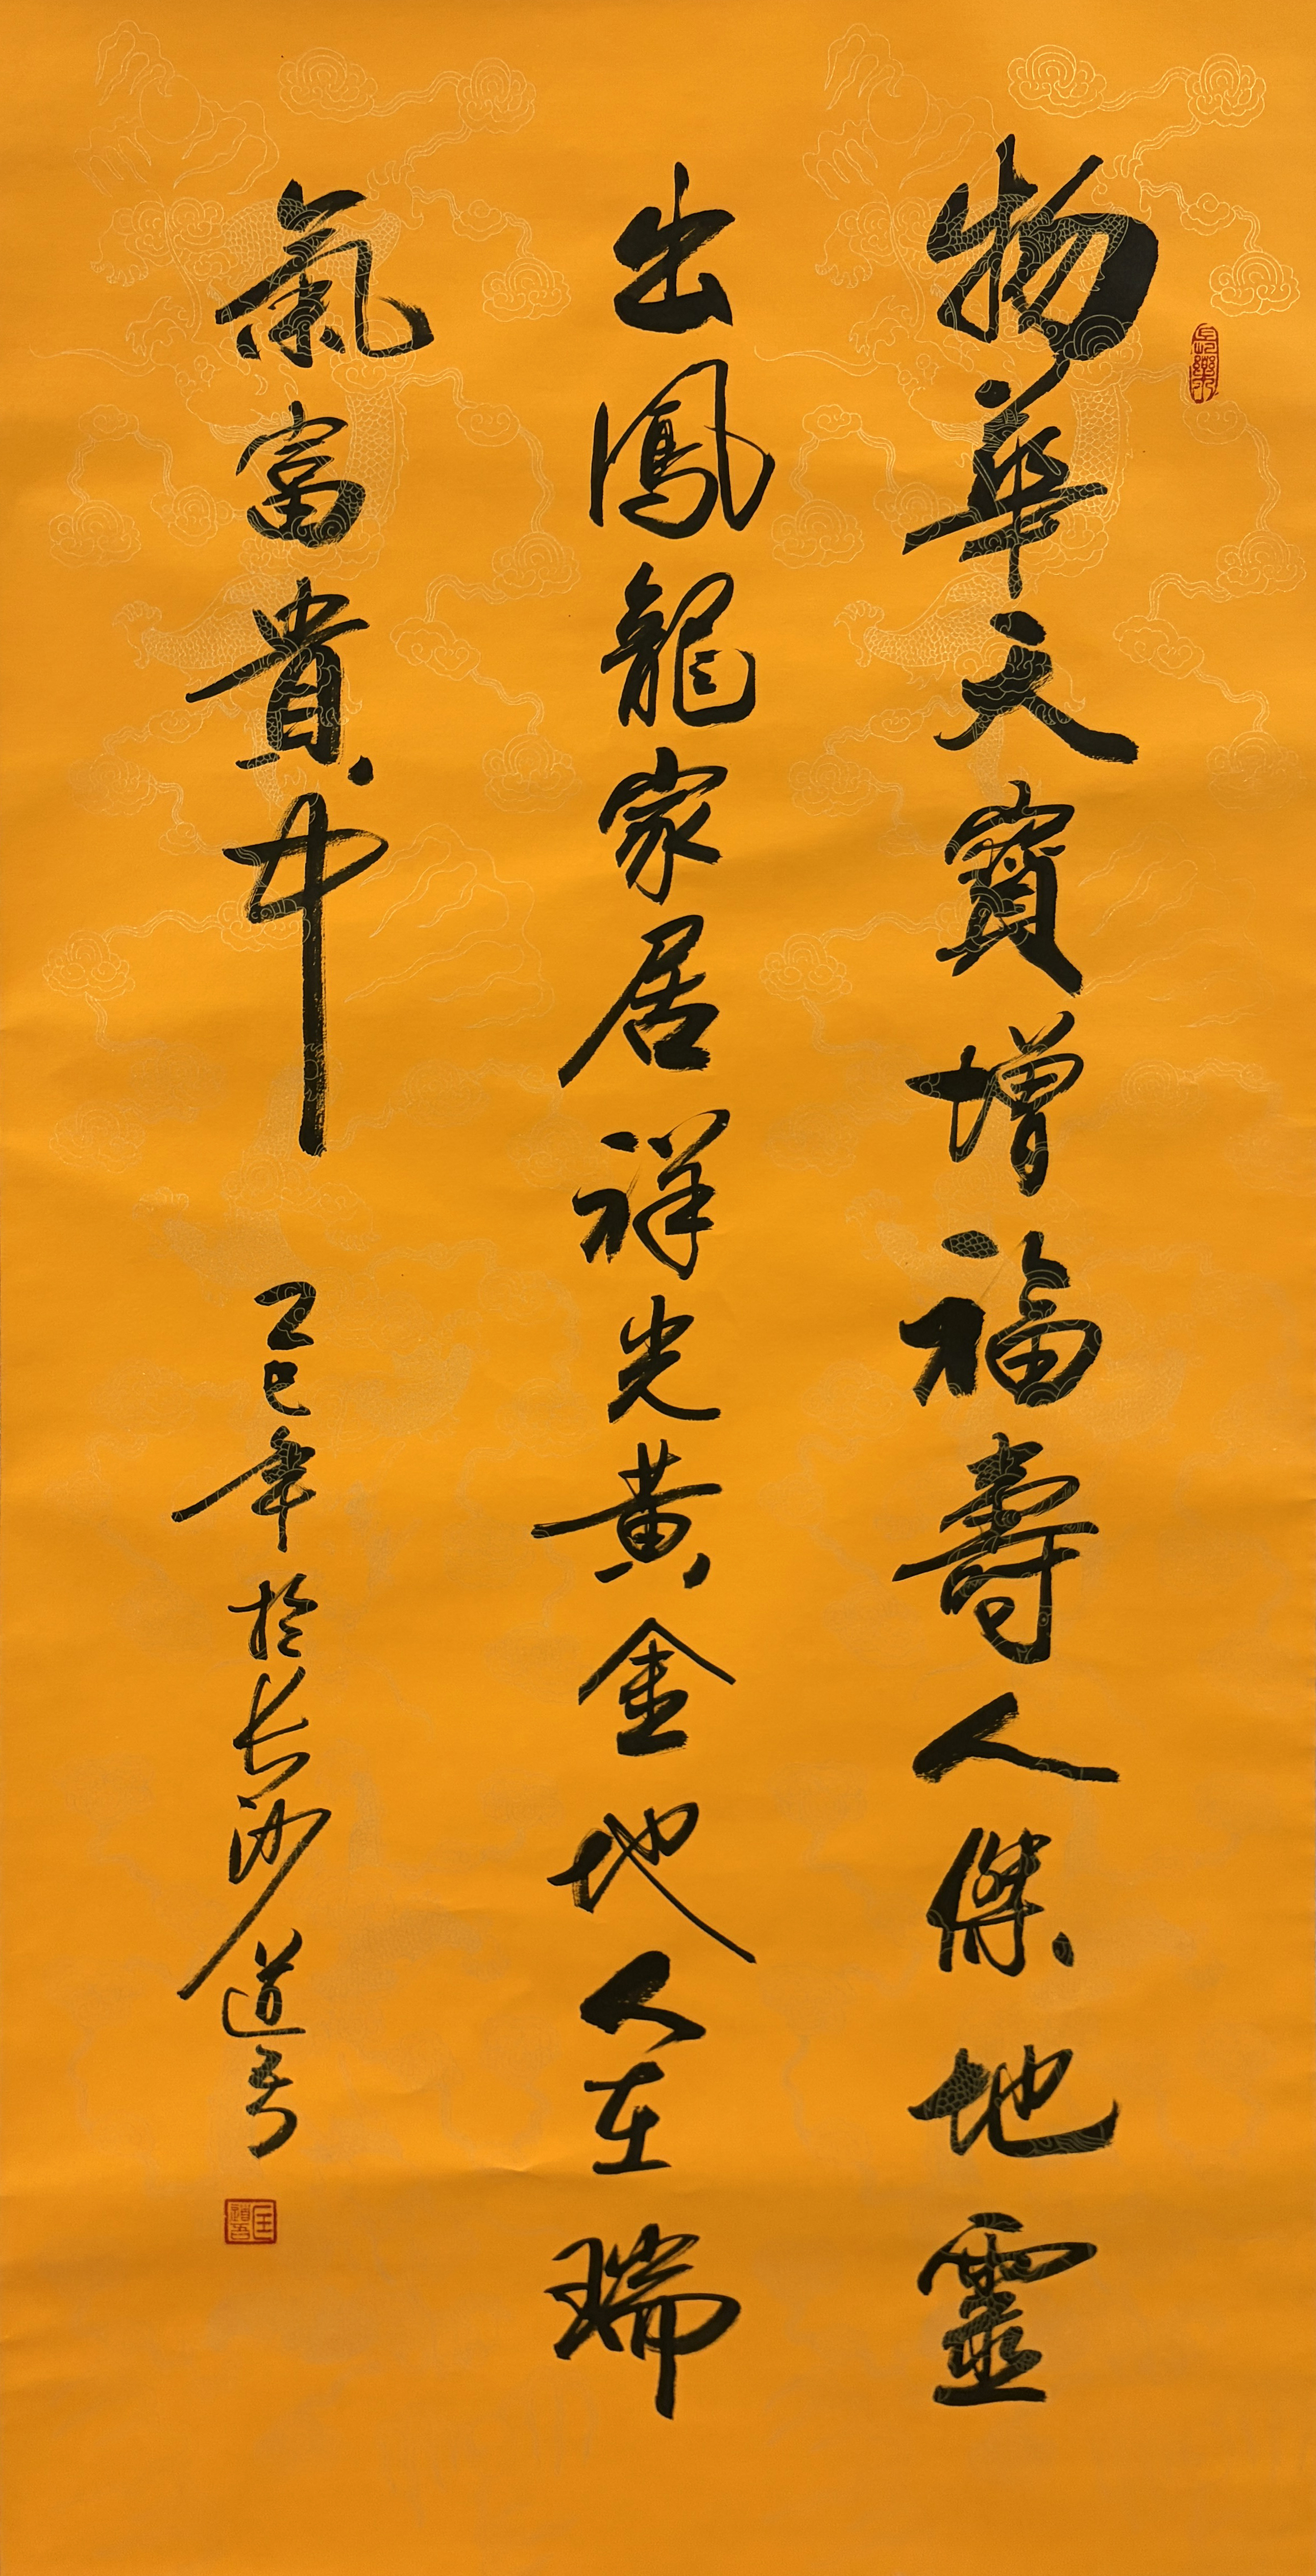 物華天寶增福壽人傑地靈
出鳳龍家居祥光黃金地人在瑞
氣富貴中
乙巳年於長沙道吾
長樂
匡道吾